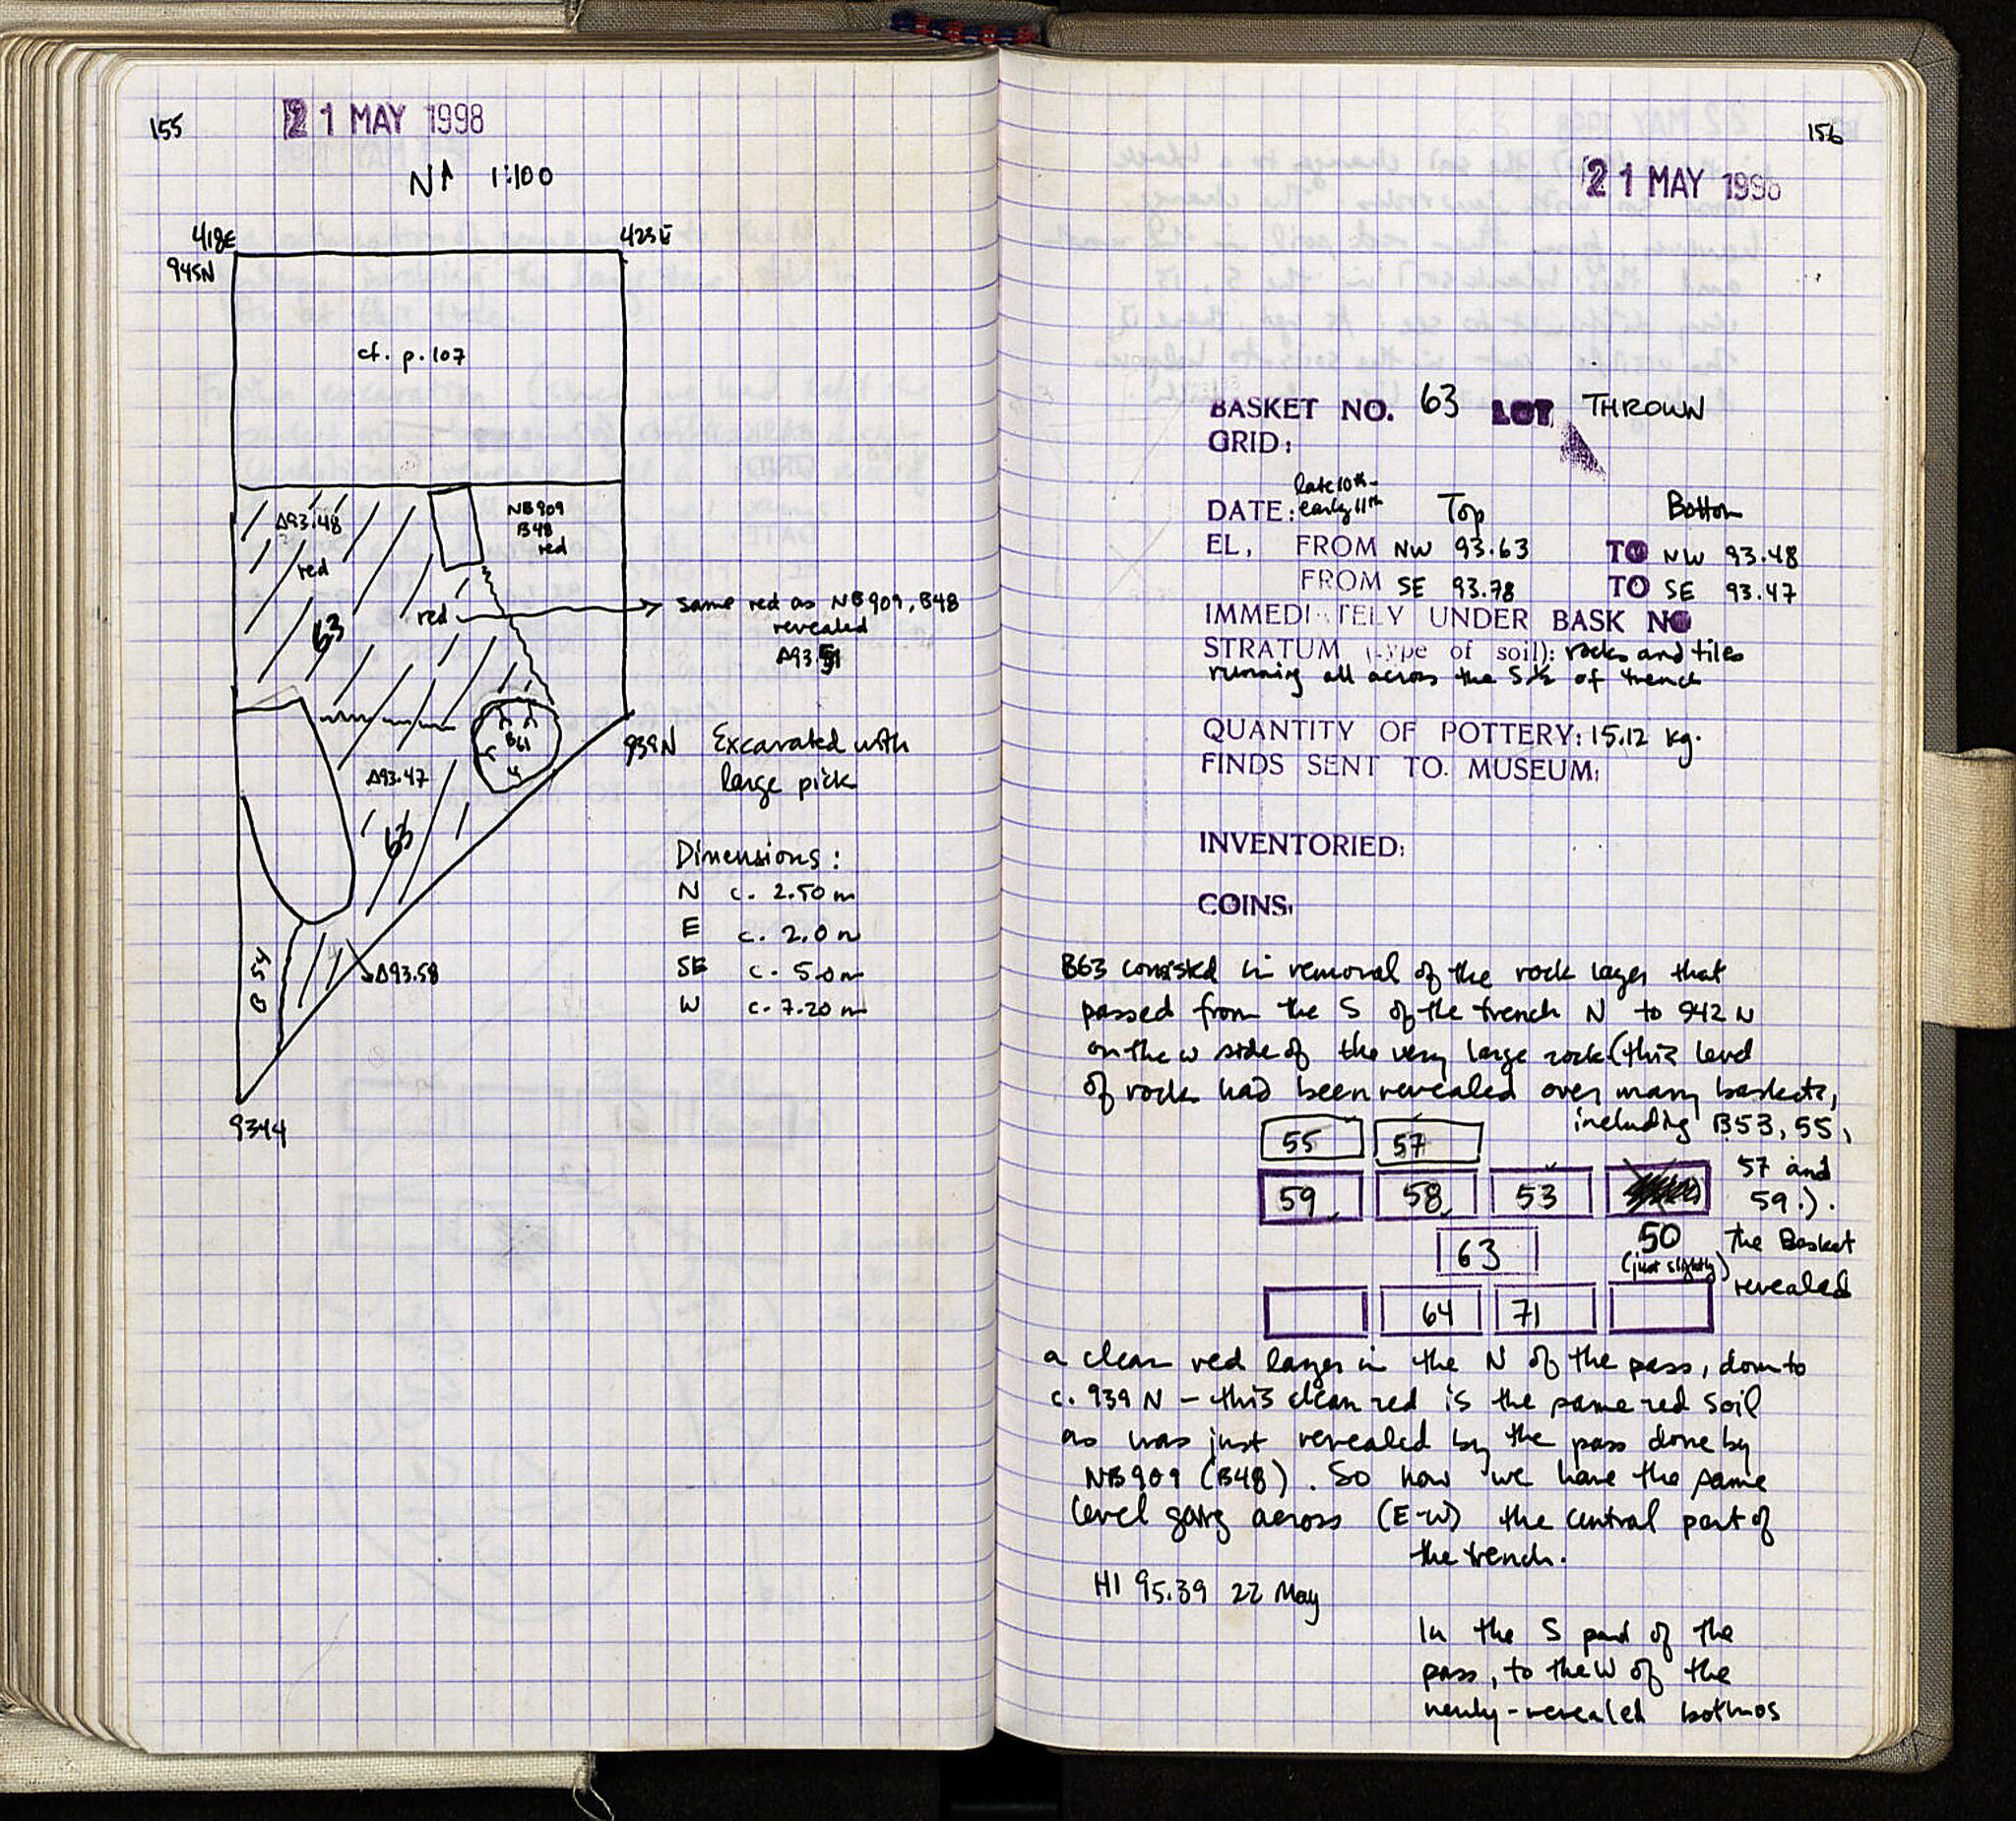 155
21 MAY 1998
N↑ 1:100
418E
423E
945N
cf. p. 107
Δ93.48
red
NB909
B48
red
red
same red as NB909, B48
revealed
Δ93.51
63
B61
939N
Excavated with
large pick
Δ93.47
63
Dimensions:
N c. 2.50 m
E c. 2.0 m
SE c. 5.0 m
W c. 7.20 m
B 54
Δ93.58
156
21 MAY 1998
BASKET NO. 63 LOT THROWN
GRID:
late 10th-
DATE: early 11th Top Bottom
EL, FROM NW 93.63 TO NW 93.48
FROM SE 93.78 TO SE 93.47
IMMEDIATELY UNDER BASK NO
STRATUM (type of soil): rocks and tiles
running all across the S½ of trench
QUANTITY OF POTTERY: 15.12 kg.
FINDS SENT TO. MUSEUM:
INVENTORIED:
COINS:
B63 consisted in removal of the rock layer that
passed from the S of the trench N to 942 N
on the W side of the very large rock (this level
of rocks had been revealed over many baskets,
including B53, 55,
57 and
59.).
55 57
59 58 53
63
50
(just slightly)
64 71
The Basket
revealed
a clean red layer in the N of the pass, down to
c. 939 N - this clean red is the same red soil
as was just revealed by the pass done by
NB909 (B48). So now we have the same
level going across (E-W) the central part of
the trench.
HI 95.39 22 May
In the S part of the
pass, to the W of the
newly-revealed bothros